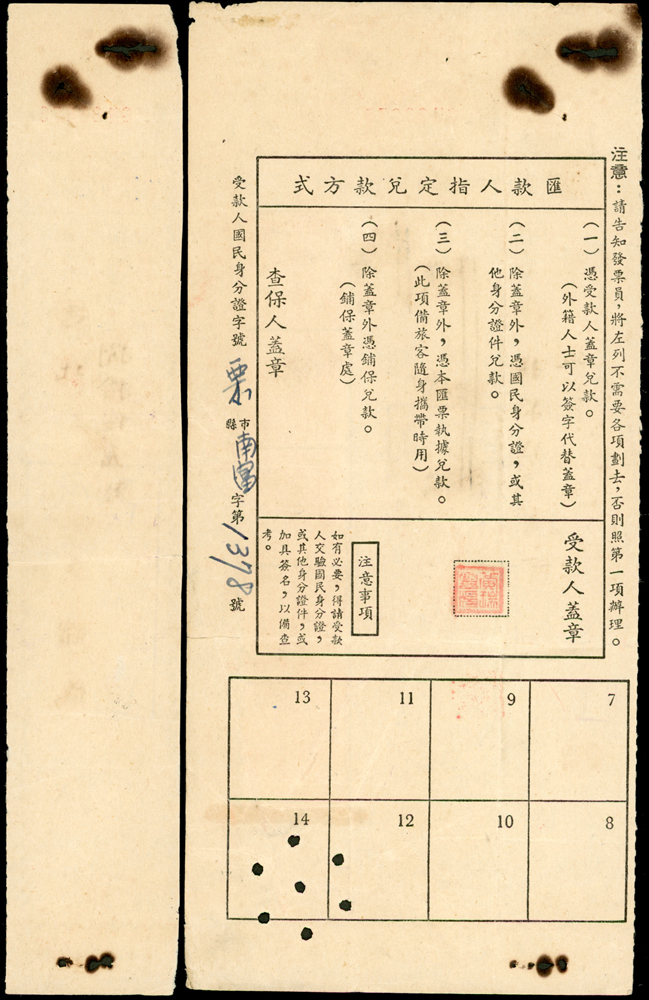 注意：請告知發票員，將左列不需要各項劃去，否則照第一項辦理。
匯款人指定兌款方式
（一）憑受款人蓋章兌款。
（外籍人士可以簽字代替蓋章）
（二）除蓋章外，憑國民身分證，或其
他身分證件兌款。
（三）除蓋章外，憑本匯票執據兌款。
（此項備旅客隨身攜帶時用）
（四）除蓋章外憑鋪保兌款。
（鋪保蓋章處）
查保人蓋章
受款人蓋章
注意事項
如有必要，得請受款
人交驗國民身分證，
或其他身分證件，或
加具簽名，以備查
考。
受款人國民身分證字號 栗 縣市 南富 字第 1378 號
13 11 9 7
14 12 10 8